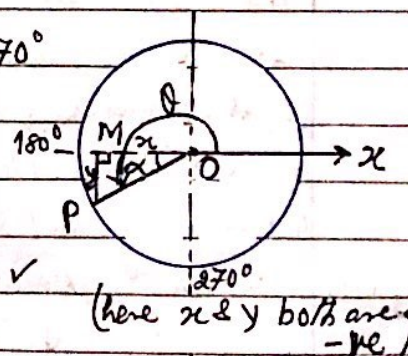 70°
θ
180° M x
y α O x
P
270°
(here x & y both are
-ve)